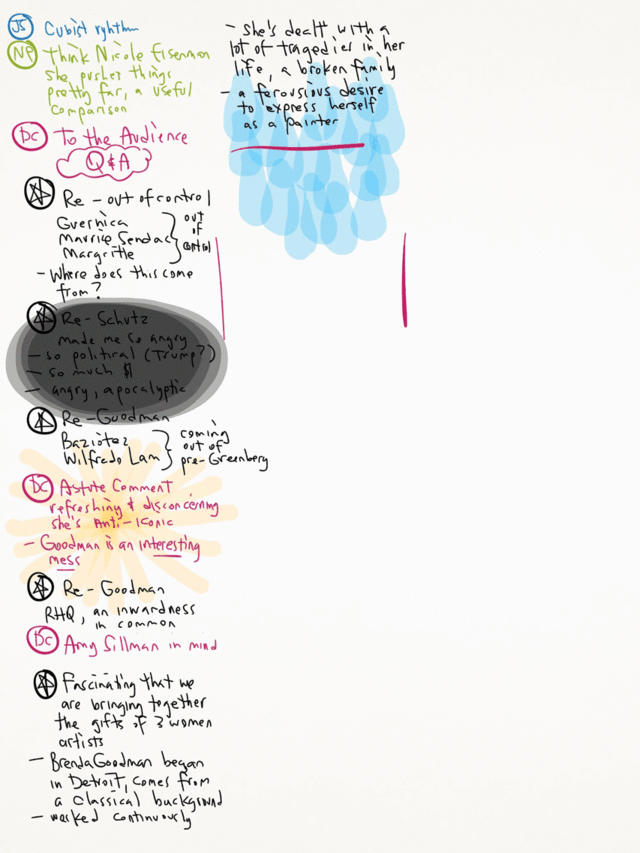 JS Cubist ryhthm
NP Think Nicole Eisenman
she pushes things
pretty far, a useful
comparison
DC To the Audience
Q&A
A Re - out of control
Guernica
Maurice Sendac
Margritte
out
of
control
- Where does this come
from?
A Re - Schutz
made me so angry
- so political (Trump?)
- so much $
- angry, apocalyptic
A Re - Goodman
Baziotez
Wilfredo Lam
coming
out of
pre-Greenberg
DC Astute Comment
refreshing & disconcerning
she's Anti-iconic
- Goodman is an interesting
mess
A Re - Goodman
RHQ, an inwardness
in common
DC Amy Sillman in mind
A Fascinating that we
are bringing together
the gifts of 3 women
artists
- Brenda Goodman began
in Detroit, comes from
a classical background
- worked continuously
- she's dealt with a
lot of tragedies in her
life, a broken family
- a ferousious desire
to express herself
as a painter